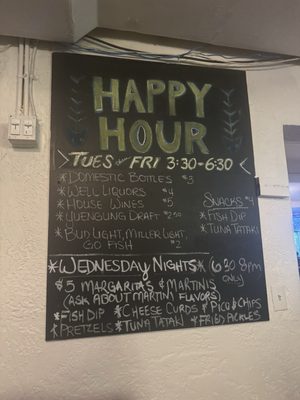 HAPPY
HOUR
TUES thru FRI 3:30-6:30
*DOMESTIC BOTTLES $3
*WELL LIQUORS $4
*HOUSE WINES $5
*YUENGLING DRAFT $2.50
*BUD LIGHT, MILLER LIGHT,
GO FISH $2
SNACKS $4
*FISH DIP
*TUNA TATAKI
*WEDNESDAY NIGHTS* (6:30-8pm
ONLY)
$5 MARGARITAS & MARTINIS
(ASK ABOUT MARTINI FLAVORS)
*FISH DIP *CHEESE CURDS *PICO & CHIPS
*PRETZELS *TUNA TATAKI *FRIED PICKLES